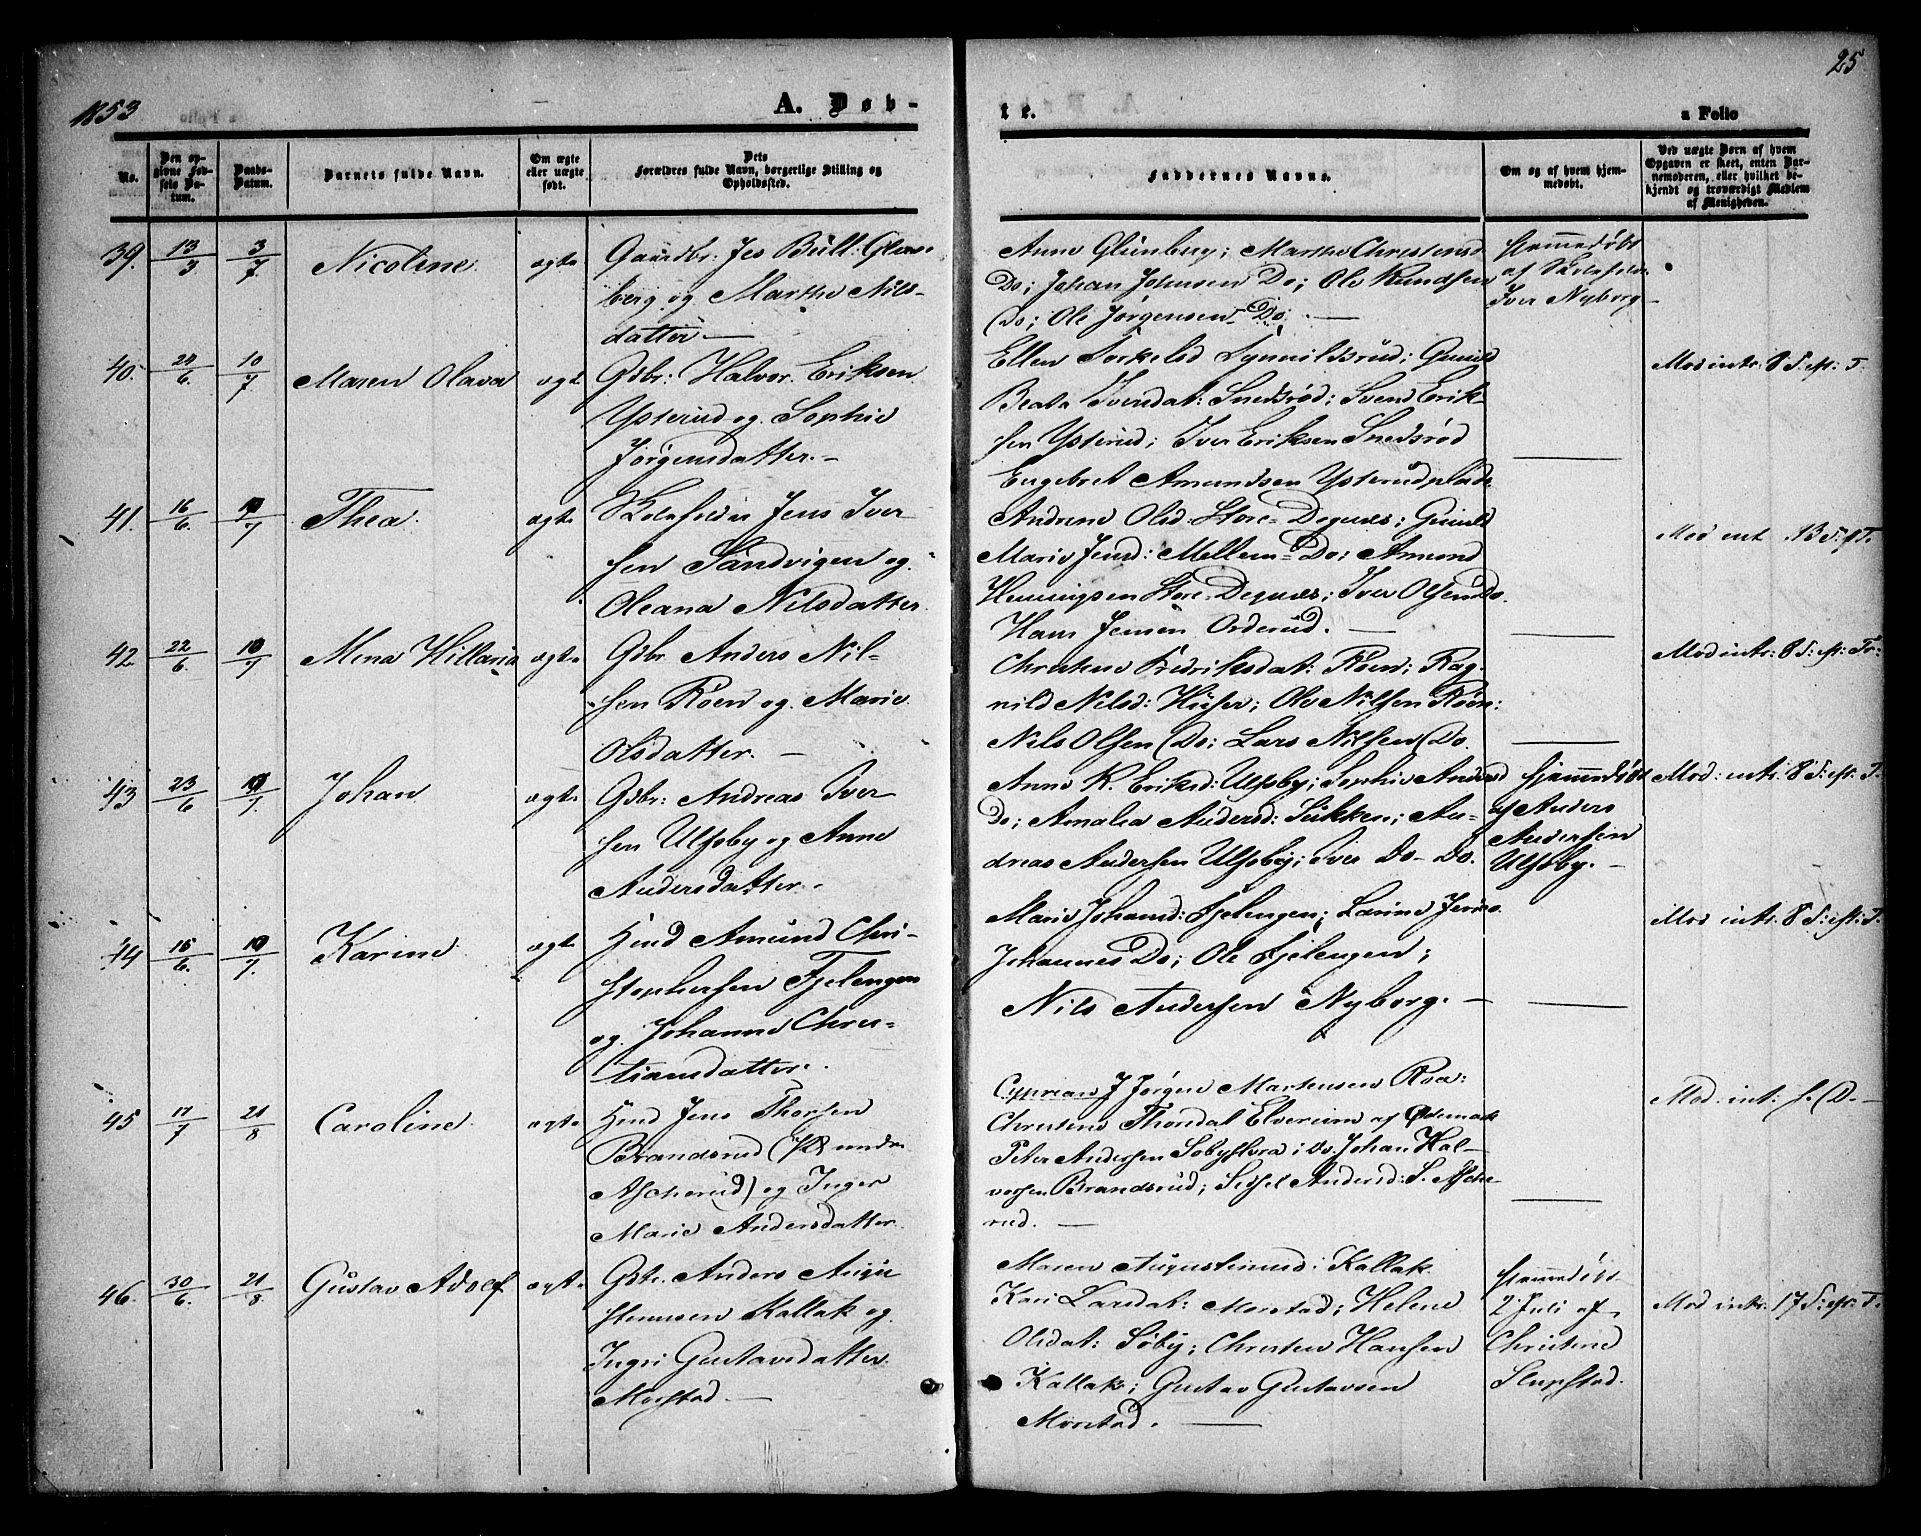 1853
A. Døb-
te.
a Folio
25
No.
Den op-
givne Fød-
sels Da-
tum.
Daabs-
Datum.
Barnets fulde Navn.
Om ægte
eller uægte
født.
Dets
Forældres fulde Navn, borgerlige Stilling og
Opholdssted.
Faddernes Navne.
Om og af hvem hjem-
medøbt.
Ved uægte Børn af hvem
Opgaven er skeet, enten Bar-
nemoderen, eller hvilket be-
kjendt og troværdigt Medlem
af Menigheden.
39. 13/3 3/7 Nicoline ægte
Gaardbr: Jes Bull: Glens-
berg og Marthe Nils-
datter —
Anne Glünberg; Marthe Christensd
Do; Johan Johnsen Do; Ole Knudsen
Do; Ole Jørgensen Do. —
Hjemmedøbt
af Skoleholder
Iver Nyborg —
40. 24/6 10/7 Maren Olava ægt
Gdbr: Halvor Eriksen
Ysterud og Sophie
Jørgensdatter. —
Ellen Torkelsd Gunnildsrud; Gunild
Beate Iversdat: Snedsrød; Svend Erik-
sen Ysterud; Iver Eriksen Snedsrød
Engebret Amundsen Ysterudplads
Mod intr: 8 S. ef: T.
41. 16/6 10/7 Thea. ægte
Skoleholder Jens Iver
sen Sandvigen og
Oleana Nilsdatter.
Andrine Olsd: Store-Degnæs; Gunild
Marie Jensd: Mellem-Do; Amund
Henningsen Store-Degnæs; Iver Olsen Do.
Hans Jensen Orderud. —
Mod int 13 S. e T.
42. 22/6 10/7 Mina Hillaria ægte
Gdbr. Anders Nil-
sen Röen og Marie
Olsdatter. —
Christine Fredriksdat: Röen; Rag-
nild Nilsd: Huser; Ole Nilsen Röen;
Nils Olsen Do; Lars Nilsen Do.
Mod intr: 8 S: ef: Tr:
43 23/6 10/7. Johan ægte
Gdbr: Andreas Iver
sen Ulfsby og Anne
Andersdatter. —
Anne K. Eriksd: Ulfsby; Sophie Andersd
Do; Amalia Andersd: Sukken; An-
dreas Andersen Ulfsby; Iver Do- Do.
Hjemmedøbt
af Anders
Andersen
Ulfsby. —
Mod: intr: 8 S: ef: T.
44 15/6. 10/7. Karine ægte
Hmd Amund Chri-
stophersen Fjelengen
og Johanne Chris-
tiansdatter. —
Marie Johansd: Fjelengen; Larine Jens
Johannes Do; Ole Fjelengen;
Nils Andersen Nyborg. —
Mod intr: 8 S: ef: T.
45 17/7 21/8 Caroline. ægte
Hmd Jens Thorsen
Brandsrud (Pl under
Ascherud) og Inger
Marie Andersdatter.
Cyprian J Jørgen Martensen Roa:
Christens Thondal Elverum af Ødemark
Peter Andersen Sobystora i Do. Johan Hal-
vorsen Brandsrud; Sidsel Andersd: S. Asche-
rud. —
Mod: int: s. D. —
46. 30/6. 21/8. Gustav Adolf ægte.
Gdbr. Anders Augu
stenusen Kallak og
Ingri Gustavsdatter.
Morstad. —
Maren Augustinusd: Kallak.
Kari Larsdat: Morstad; Helene
Olsdat: Søby; Christen Hansen
Kallak; Gustav Gustavsen
Morstad. —
Hjemmedøbt
2 Juli af
Christine
Slupstad.
Mod intr: 17 S: ef: T.